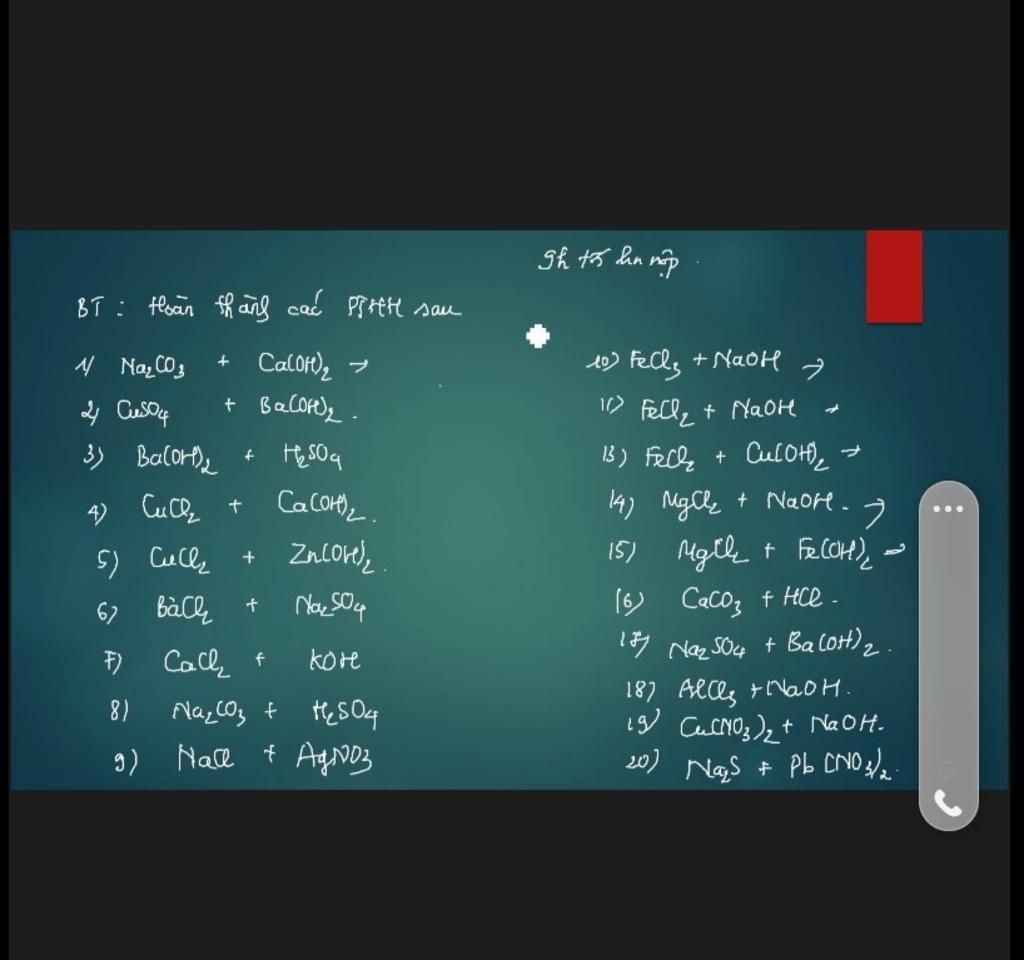 BT : Hoàn thành các PTHH sau
1) Na₂CO₃ + Ca(OH)₂ →
2) CuSO₄ + Ba(OH)₂.
3) Ba(OH)₂ + H₂SO₄
4) CuCl₂ + Ca(OH)₂.
5) CuCl₂ + Zn(OH)₂.
6) BaCl₂ + Na₂SO₄
7) CaCl₂ + KOH
8) Na₂CO₃ + H₂SO₄
9) NaCl + AgNO₃
10) FeCl₃ + NaOH →
11) FeCl₂ + NaOH →
13) FeCl₂ + Cu(OH)₂ →
14) MgCl₂ + NaOH. →
15) MgCl₂ + Fe(OH)₂ →
16) CaCO₃ + HCl.
17) Na₂SO₄ + Ba(OH)₂.
18) AlCl₃ + NaOH.
19) Cu(NO₃)₂ + NaOH.
20) Na₂S + Pb(NO₃)₂.